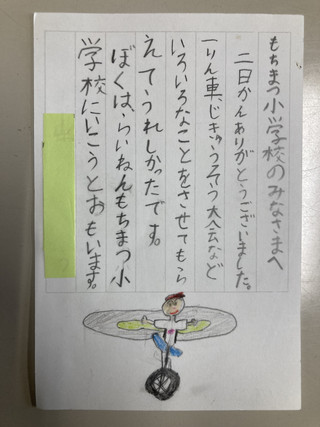 もちまつ小学校のみなさまへ
二日かんありがとうございました。
一りん車、じきゅうそう大会など
いろいろなことをさせてもら
えてうれしかったです。
ぼくは、らいねんもちまつ小
学校にいこうとおもいます。